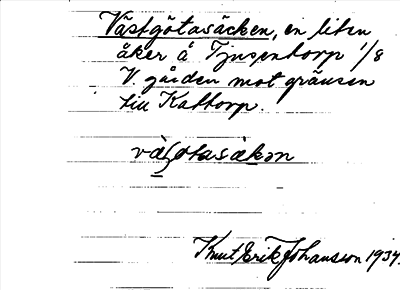 Västgötasäcken, en liten
åker å Tjusentorp 1/8
V. gården mot gränsen
till Kattorp.
Knut Erik Johansson 1934.